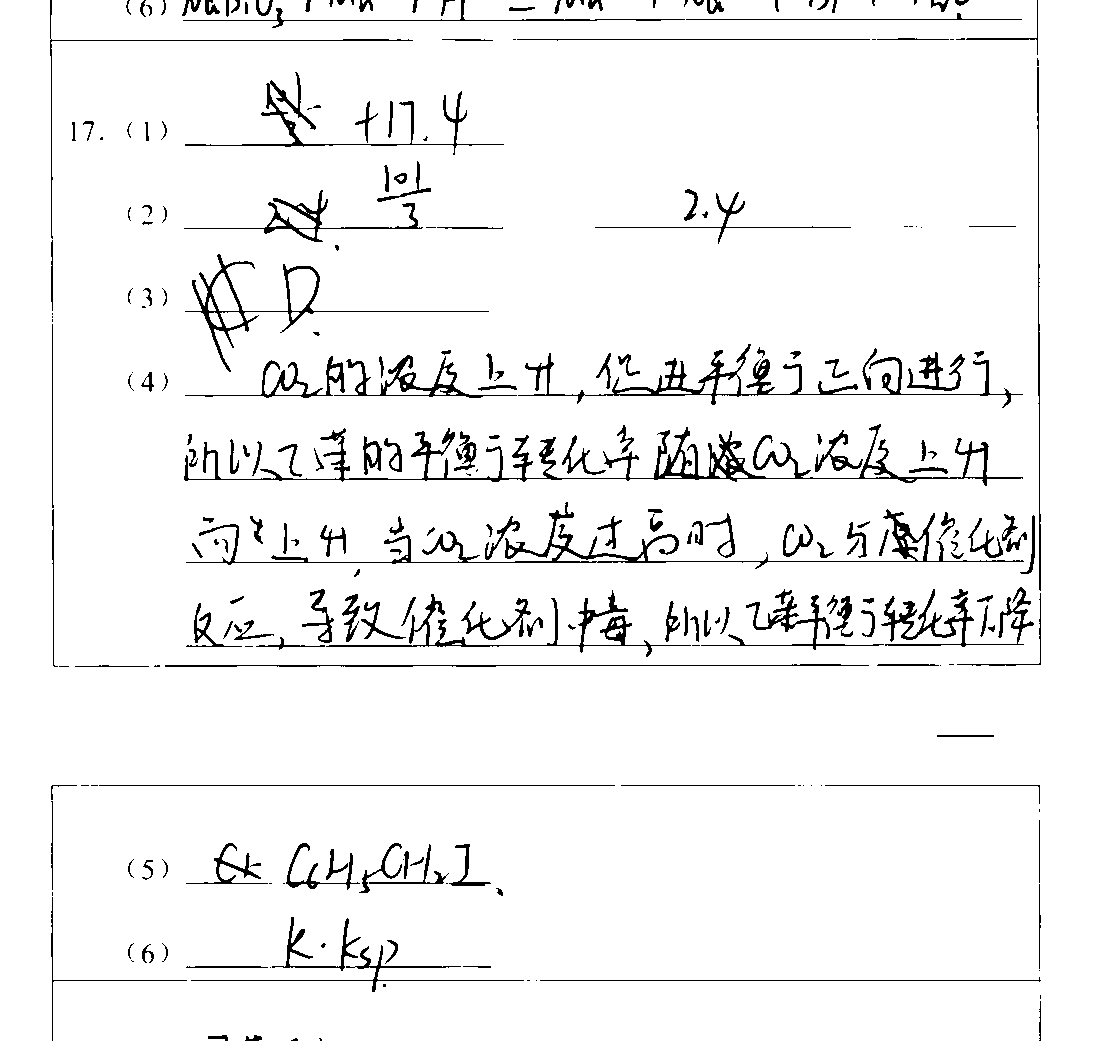 (6) NaBiO₃ + Mn + H = Mn + Na + Bi +
17. (1) +17.4
(2) 101/3 2.4
(3) D.
(4) CO₂的浓度上升, 促进平衡于正向进行,
所以乙苯的平衡于转化率随CO₂浓度上升
而上升, 当CO₂浓度过高时, CO₂与催化剂
反应, 导致催化剂中毒, 所以乙苯平衡于转化率下降
(5) C₆H₅CH₂I.
(6) K·Ksp